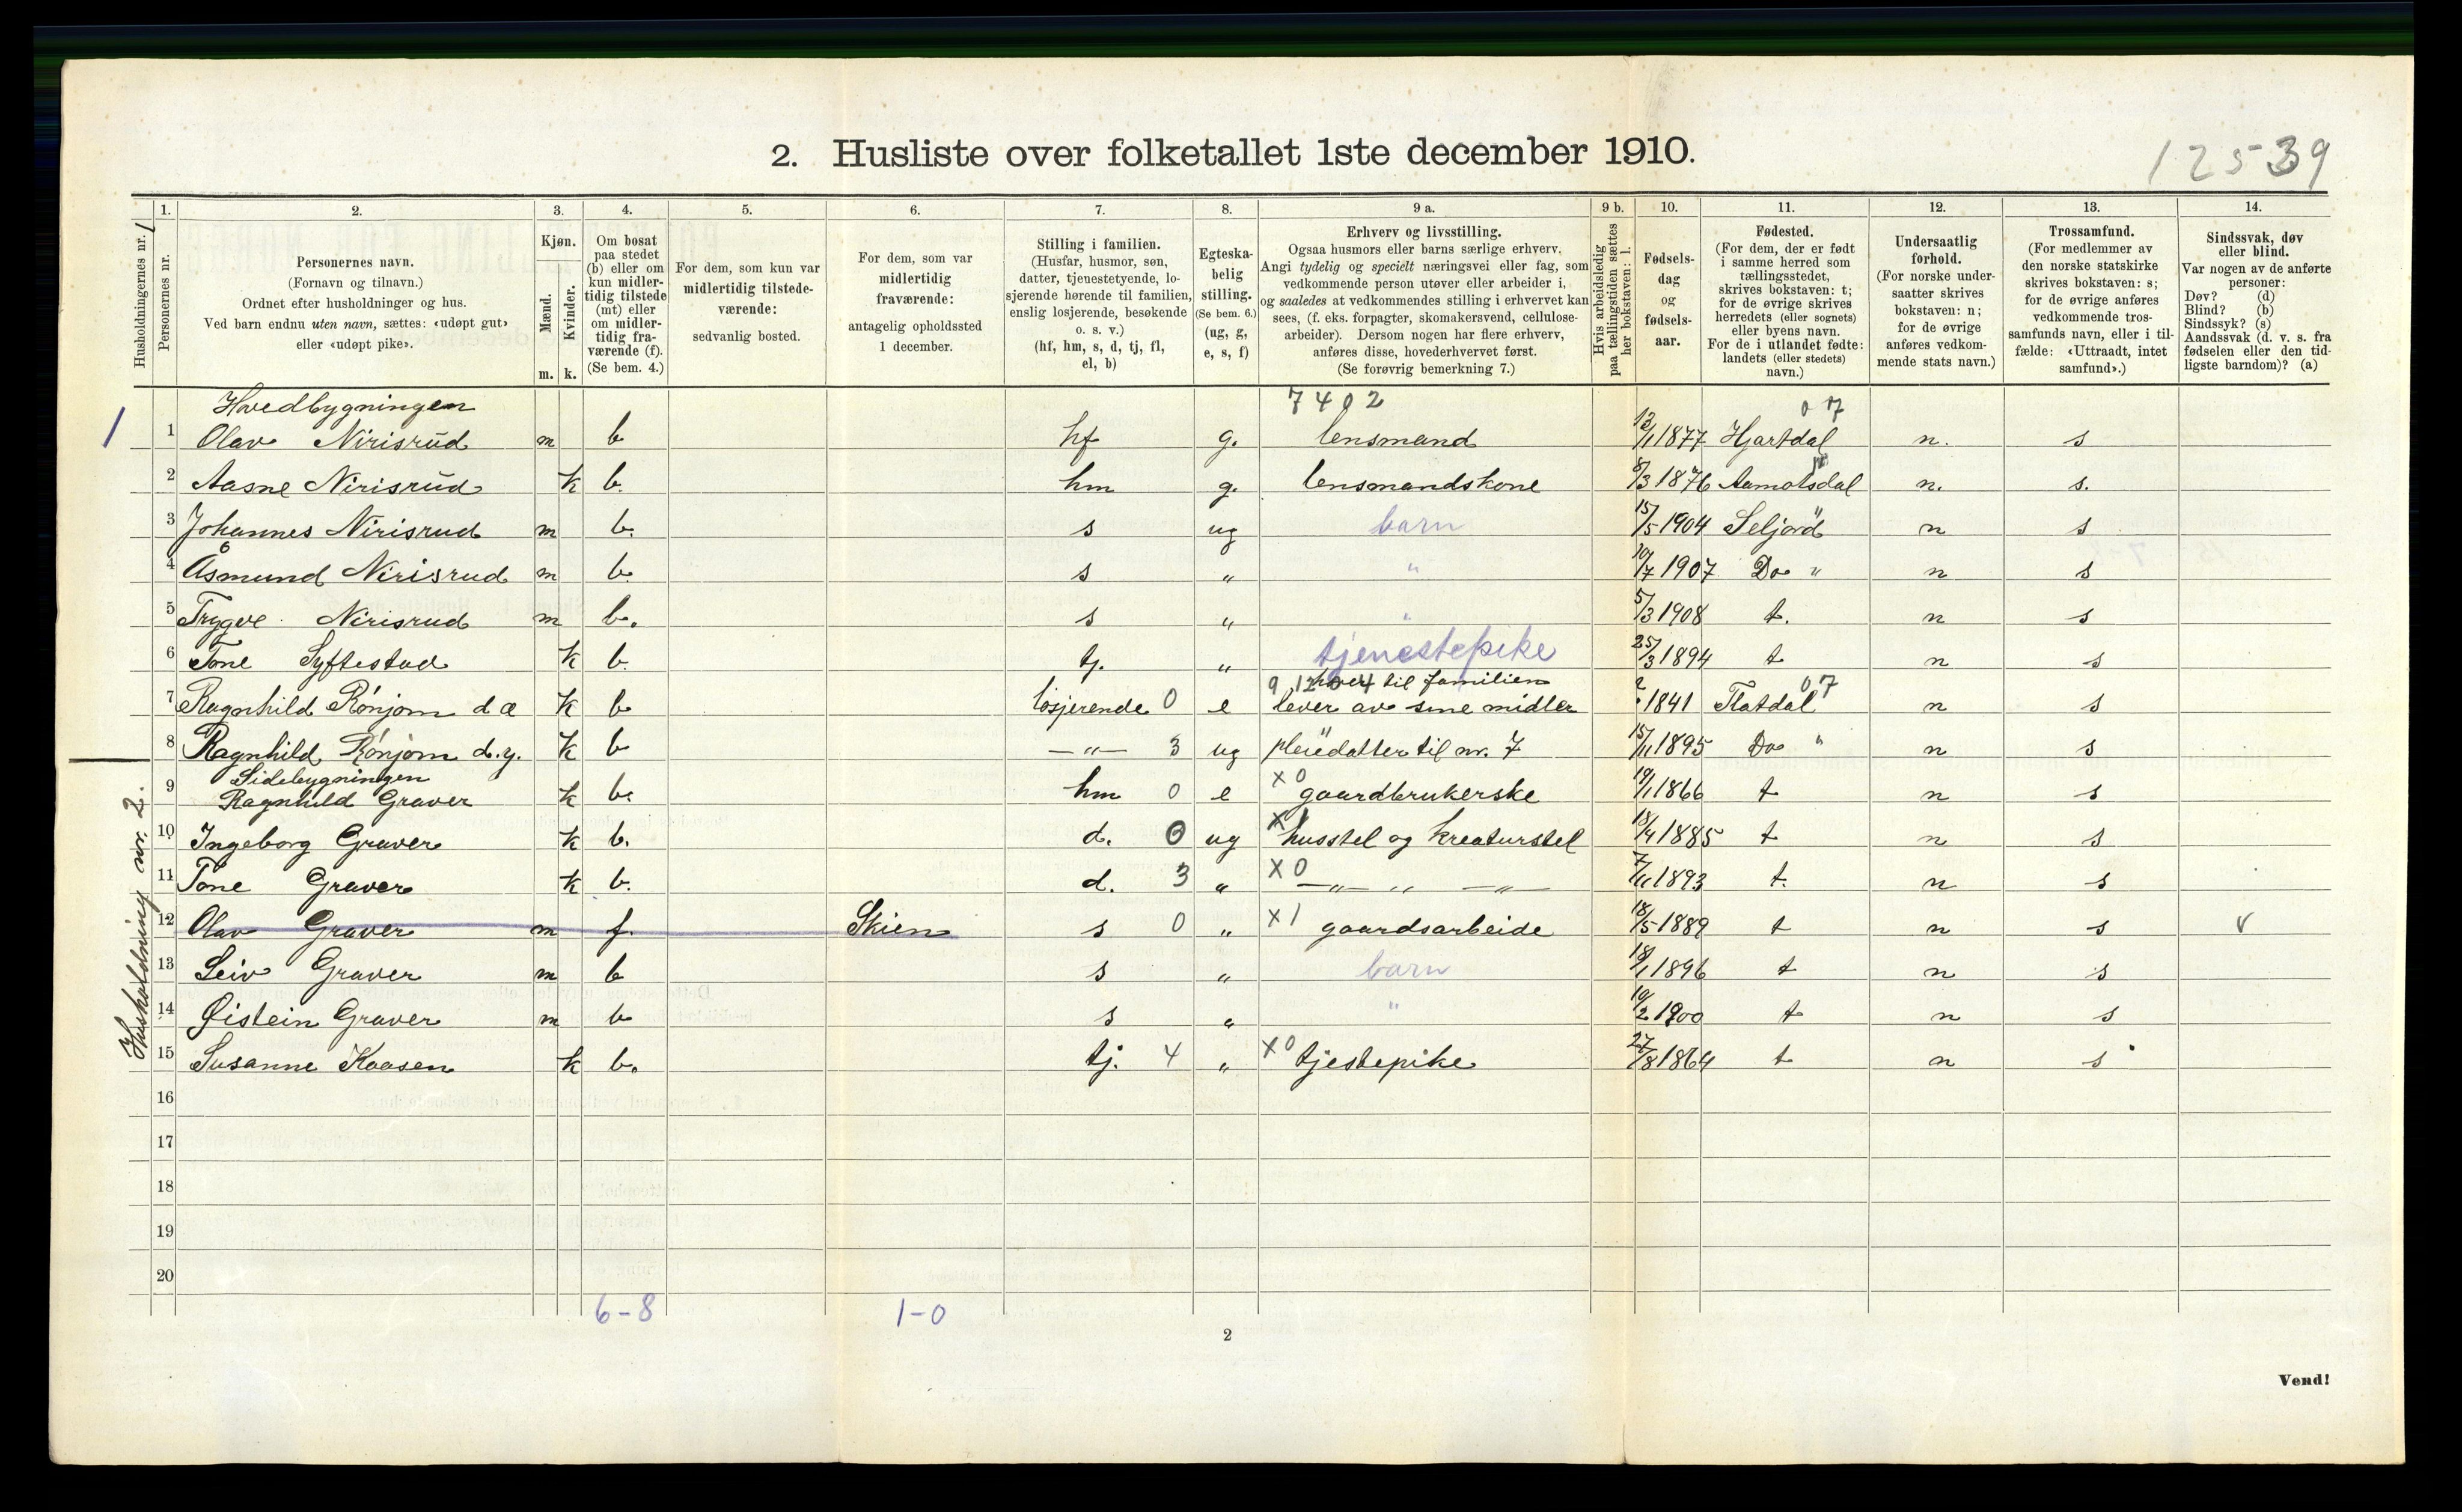 2. Husliste over folketallet 1ste december 1910.
12539
Husholdningernes nr.
1. Personernes nr.
2. Personernes navn. (Fornavn og tilnavn.) Ordnet efter husholdninger og hus. Ved barn endnu uten navn, sættes: «udøpt gut» eller «udøpt pike».
3. Kjøn. Mænd. m. Kvinder. k.
4. Om bosat paa stedet (b) eller om kun midler-tidig tilstede (mt) eller om midler-tidig fra-værende (f). (Se bem. 4.)
5. For dem, som kun var midlertidig tilstede-værende: sedvanlig bosted.
6. For dem, som var midlertidig fraværende: antagelig opholdssted 1 december.
7. Stilling i familien. (Husfar, husmor, søn, datter, tjenestetyende, lo-sjerende hørende til familien, enslig losjerende, besøkende o. s. v.) (hf, hm, s, d, tj, fl, el, b)
8. Egteska-belig stilling. (Se bem. 6.) (ug, g, e, s, f)
9 a. Erhverv og livsstilling. Ogsaa husmors eller barns særlige erhverv. Angi tydelig og specielt næringsvei eller fag, som vedkommende person utøver eller arbeider i, og saaledes at vedkommendes stilling i erhvervet kan sees, (f. eks. forpagter, skomakersvend, cellulose-arbeider). Dersom nogen har flere erhverv, anføres disse, hovederhvervet først. (Se forøvrig bemerkning 7.)
9 b. Hvis arbeidsledig paa tællingstiden sættes her bokstaven: l.
10. Fødsels-dag og fødsels-aar.
11. Fødested. (For dem, der er født i samme herred som tællingsstedet, skrives bokstaven: t; for de øvrige skrives herredets (eller sognets) eller byens navn. For de i utlandet fødte: landets (eller stedets) navn.)
12. Undersaatlig forhold. (For norske under-saatter skrives bokstaven: n; for de øvrige anføres vedkom-mende stats navn.)
13. Trossamfund. (For medlemmer av den norske statskirke skrives bokstaven: s; for de øvrige anføres vedkommende tros-samfunds navn, eller i til-fælde: «Uttraadt, intet samfund».)
14. Sindssvak, døv eller blind. Var nogen av de anførte personer: Døv? (d) Blind? (b) Sindssyk? (s) Aandssvak (d. v. s. fra fødselen eller den tid-ligste barndom)? (a)
Hovedbygningen 7402 07
1 1 Olav Nirisrud m b hf g. lensmand 12/1 1877 Hjartdal n. s
2 Aasne Nirisrud k b. hm g. lensmandskone 8/3 1876 Aamotsdal n. s.
3 Johannes Nirisrud m b. s ug barn 15/5 1904 Seljord n s
4 Åsmund Nirisrud m b. s " " 10/7 1907 Do " n s
5 Trygve Nirisrud m b. s " " 5/3 1908 t. n s
6 Tone Syftestad k b. tj. " tjenestepike 25/3 1894 t n s
til familien
7 Ragnhild Rønjom d æ k b losjerende 0 e lever av sine midler 1841 Flatdal 07 n s
8 Ragnhild Rønjom d.y. k b —"— 3 ug pleiedatter til nr. 7 15/11 1895 Do " n s
Sidebygningen
9 Ragnhild Graver k b. hm 0 e x0 gaardbrukerske 19/1 1866 t n s
10 Ingeborg Graver k b. d. 0 ug x husstel og kreaturstel 18/4 1885 t n s
11 Tone Graver k b. d. 3 " x0 —"— " —"— 7/11 1893 t. n s
12 Olav Graver m f. Skien s 0 " x1 gaardsarbeide 18/5 1889 t n s v
13 Leiv Graver m b s " barn 18/1 1896 t n s
14 Øistein Graver m b s " " 10/2 1900 t n s
15 Susanne Kaasen k b. tj. 4 " x0 tjestepike 27/8 1864 t n s
Husholdning nr. 2.
16
17
18
19
20
6-8 1-0
2
Vend!